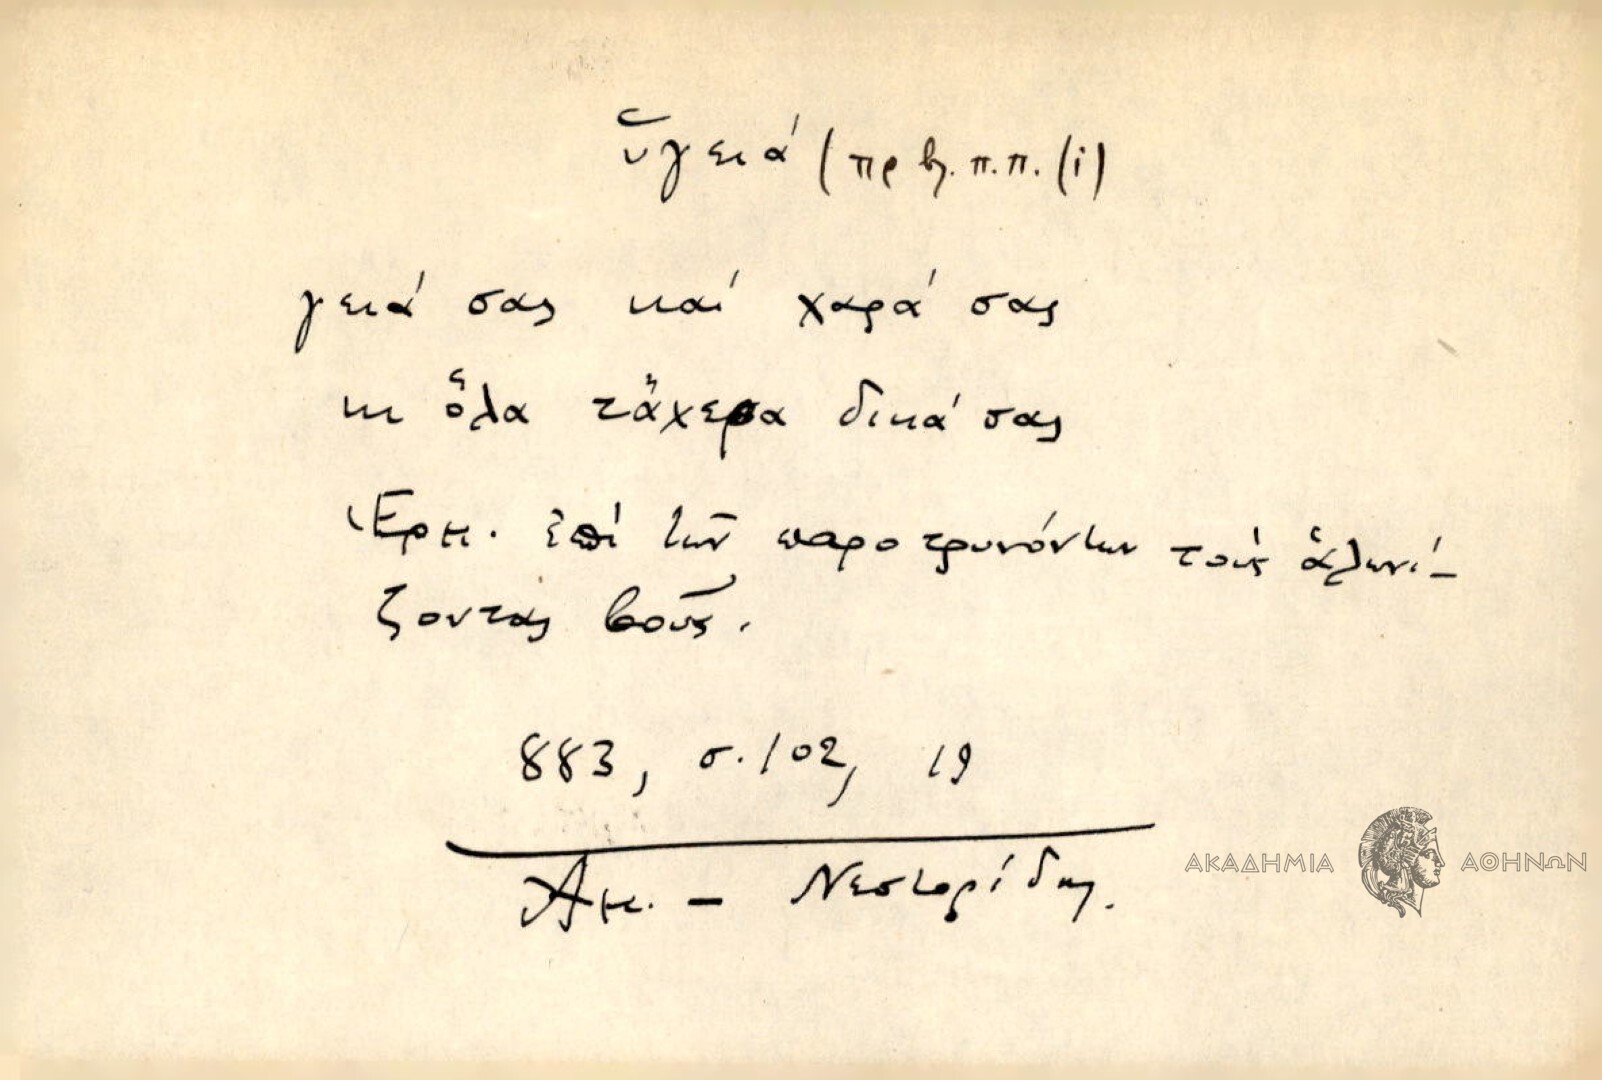 ὑγειά (πρβλ. π.π. (i)
γειά σας καί χαρά σας
κι ὅλα τἄχερα δικά σας
Ἑρμ. ἐπί τῶν παροτρυνόντων τούς ἁλωνί-
ζοντας βοῦς.
883, σ. 102, 19
Αμ. - Νεστορίδης.
ΑΚΑΔΗΜΙΑ ΑΘΗΝΩΝ